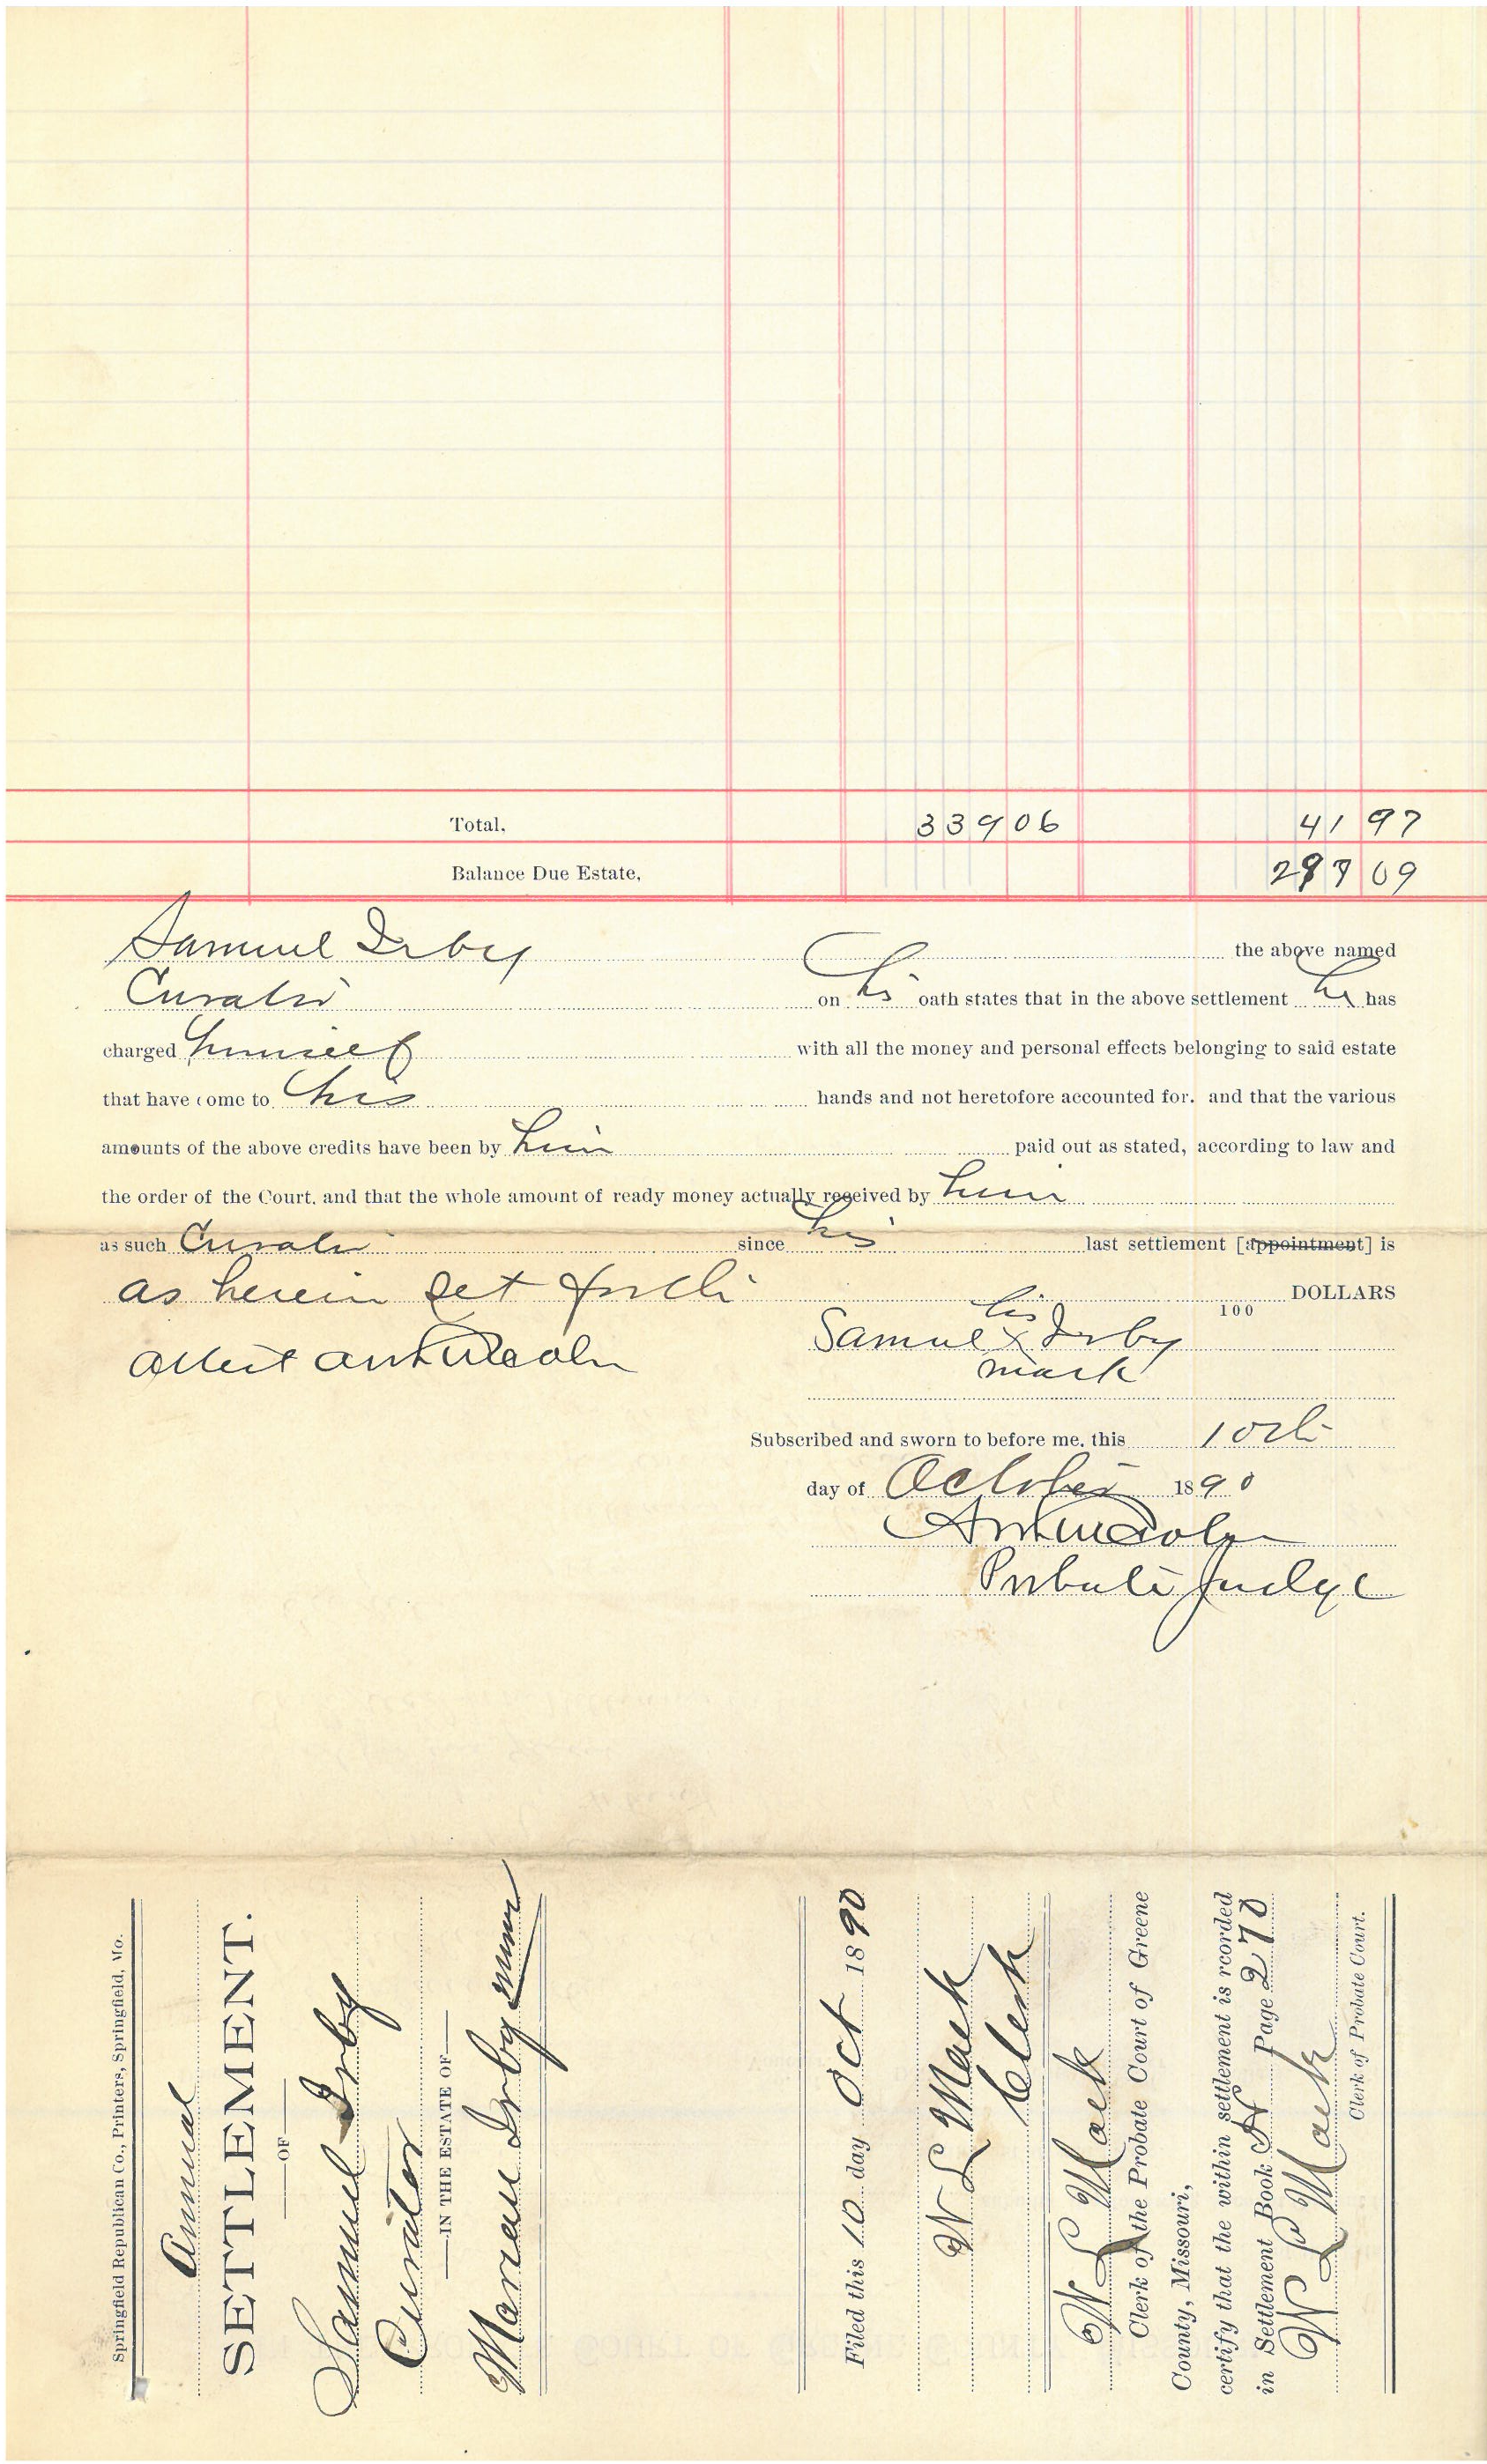 Total, 339 06 41 97
Balance Due Estate, 297 09
Samuel Irby the above named
Curator on his oath states that in the above settlement he has
charged himself with all the money and personal effects belonging to said estate
that have come to his hands and not heretofore accounted for. and that the various
amounts of the above credits have been by him paid out as stated, according to law and
the order of the Court. and that the whole amount of ready money actually received by him
as such Curator since his last settlement [appointment] is
as herein set forth 100 DOLLARS
his
Attest Samuel X Irby
mark
Subscribed and sworn to before me. this 10th
day of October 1890
Probate Judge
Springfield Republican Co., Printers, Springfield, Mo.
Annual
SETTLEMENT.
OF
Samuel Irby
Curator
IN THE ESTATE OF
Irby minor
Filed this 10 day Oct 1890
W L Mack
Clerk
W L Mack
Clerk of the Probate Court of Greene
County, Missouri,
certify that the within settlement is rcorded
in Settlement Book H Page 270
W L Mack
Clerk of Probate Court.